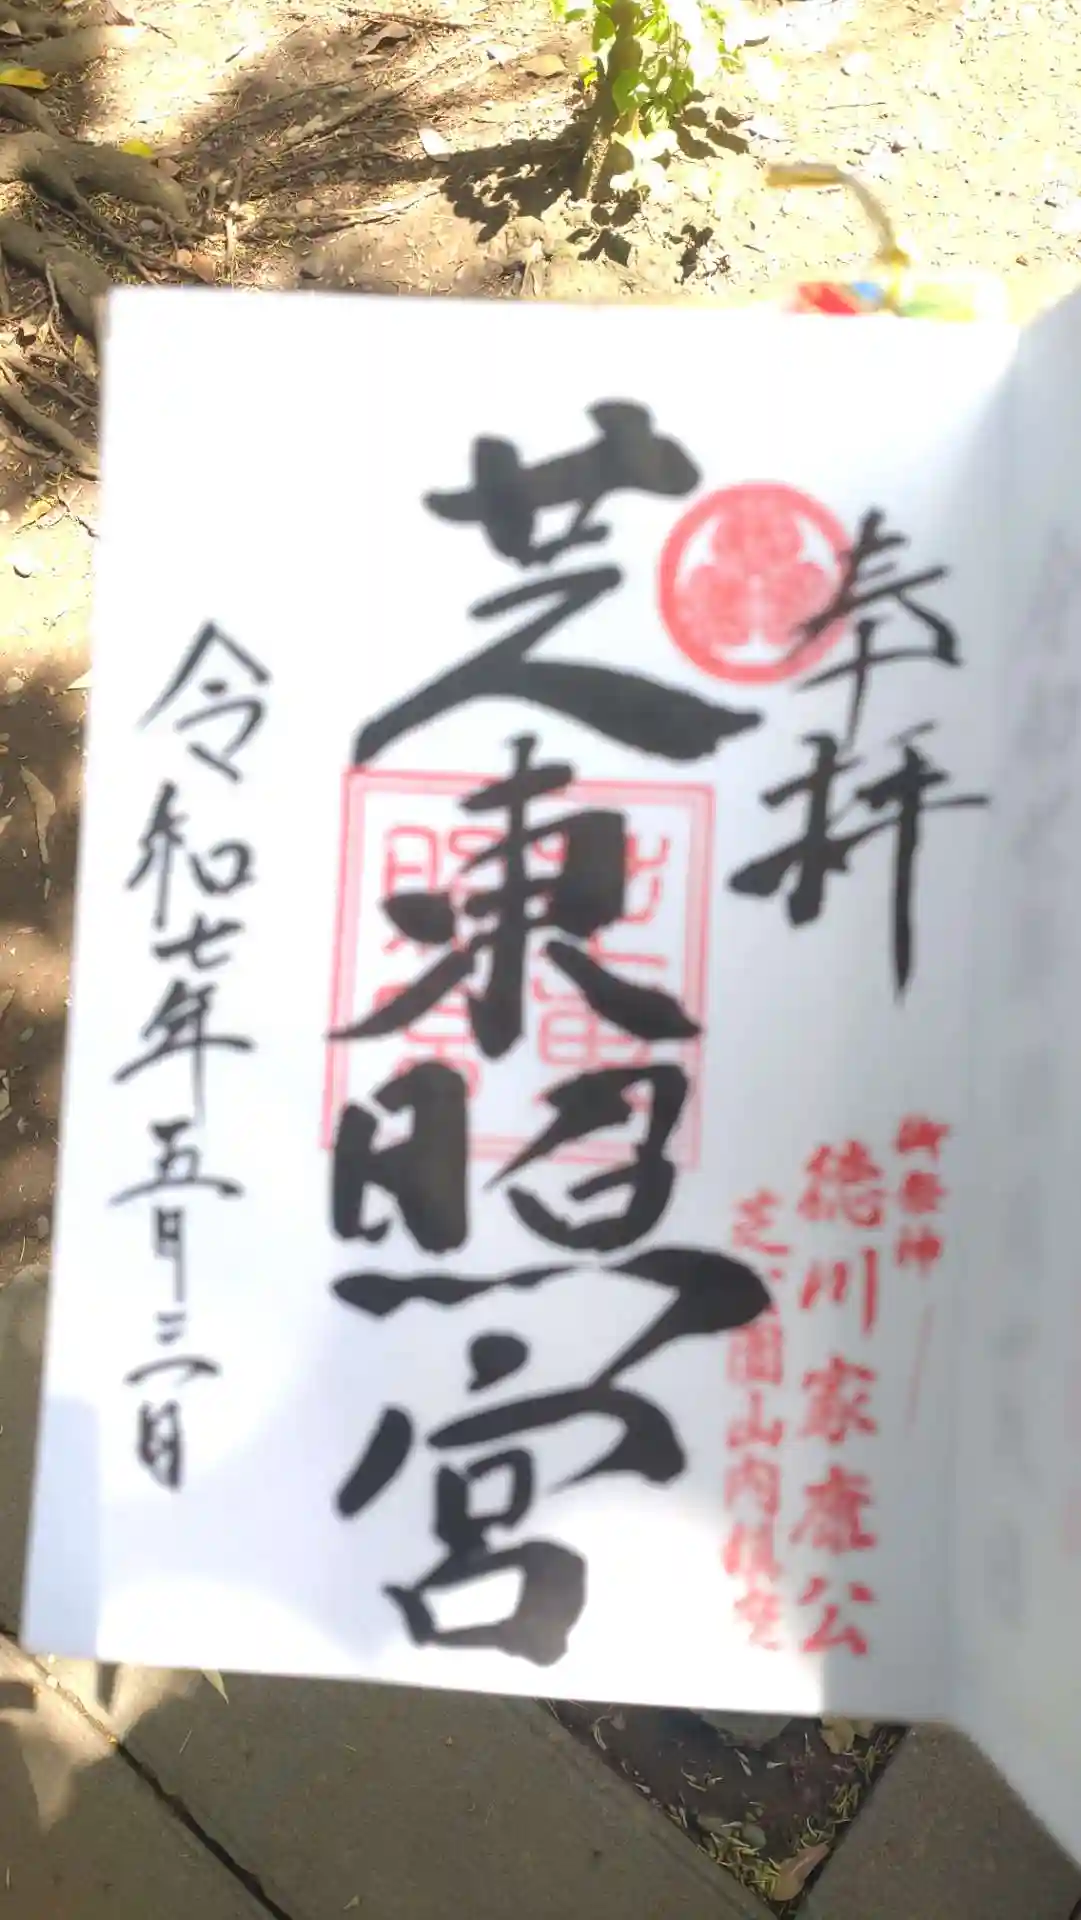 奉拝
御祭神
徳川家康公
芝公園山内鎮座
芝東照宮
令和七年五月三日